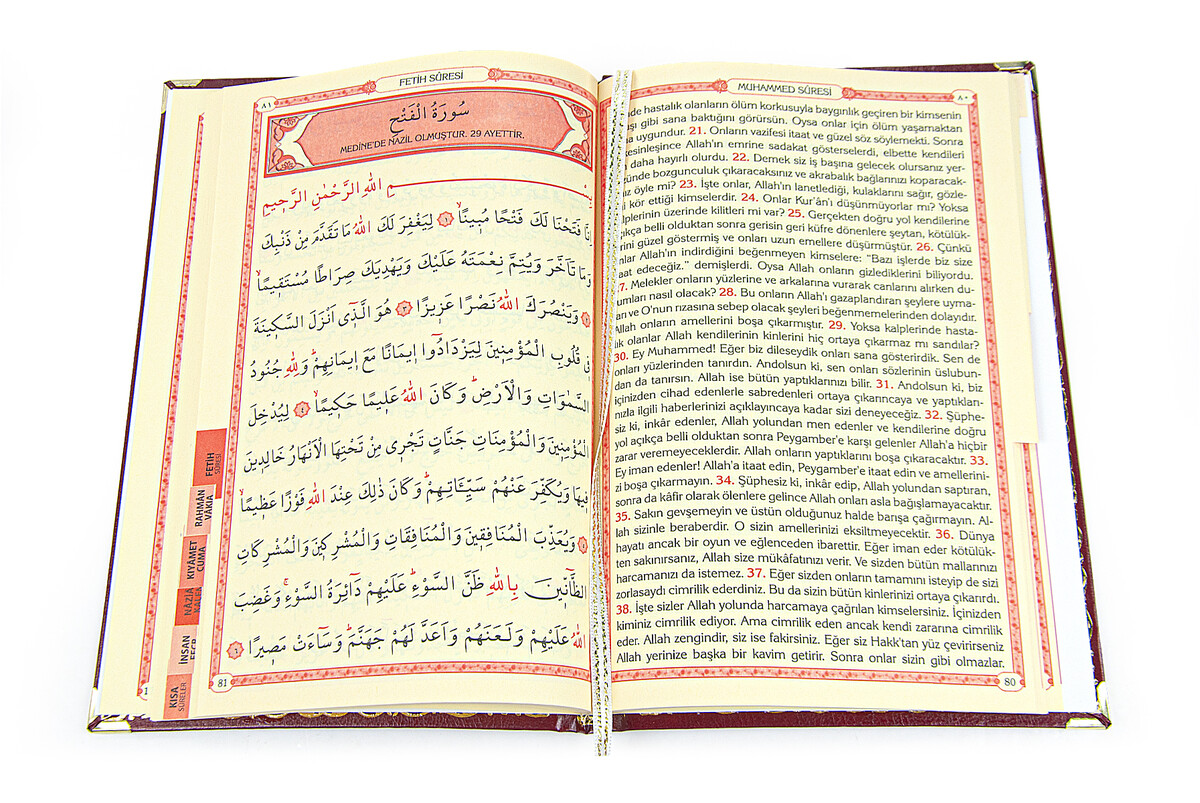 MUHAMMED SÛRESİ
٨٠
hastalık olanların ölüm korkusuyla baygınlık geçiren bir kimsenin
gibi sana baktığını görürsün. Oysa onlar için ölüm yaşamaktan
uygundur. 21. Onların vazifesi itaat ve güzel söz söylemekti. Sonra
Allah'ın emrine sadakat gösterselerdi, elbette kendileri
daha hayırlı olurdu. 22. Demek siz iş başına gelecek olursanız yer-
bozgunculuk çıkaracaksınız ve akrabalık bağlarınızı koparacak-
öyle mi? 23. İşte onlar, Allah'ın lanetlediği, kulaklarını sağır, gözle-
kör ettiği kimselerdir. 24. Onlar Kur'ân'ı düşünmüyorlar mı? Yoksa
üzerinde kilitleri mi var? 25. Gerçekten doğru yol kendilerine
belli olduktan sonra gerisin geri küfre dönenlere şeytan, kötülük-
güzel göstermiş ve onları uzun emellere düşürmüştür. 26. Çünkü
Allah'ın indirdiğini beğenmeyen kimselere: "Bazı işlerde biz size
edeceğiz." demişlerdi. Oysa Allah onların gizlediklerini biliyordu.
27. Melekler onların yüzlerine ve arkalarına vurarak canlarını alırken du-
rumları nasıl olacak? 28. Bu onların Allah'ı gazaplandıran şeylere uyma-
ve O'nun rızasına sebep olacak şeyleri beğenmemelerinden dolayıdır.
Allah onların amellerini boşa çıkarmıştır. 29. Yoksa kalplerinde hasta-
lık olanlar Allah kendilerinin kinlerini hiç ortaya çıkarmaz mı sandılar?
30. Ey Muhammed! Eğer biz dileseydik onları sana gösterirdik. Sen de
onları yüzlerinden tanırdın. Andolsun ki, sen onları sözlerinin üslubun-
dan da tanırsın. Allah ise bütün yaptıklarınızı bilir. 31. Andolsun ki, biz
içinizden cihad edenlerle sabredenleri ortaya çıkarıncaya ve yaptıkları-
nızla ilgili haberlerinizi açıklayıncaya kadar sizi deneyeceğiz. 32. Şüphe-
siz ki, inkâr edenler, Allah yolundan men edenler ve kendilerine doğru
yol açıkça belli olduktan sonra Peygamber'e karşı gelenler Allah'a hiçbir
zarar veremeyeceklerdir. Allah onların yaptıklarını boşa çıkaracaktır. 33.
Ey iman edenler! Allah'a itaat edin, Peygamber'e itaat edin ve amellerini-
zi boşa çıkarmayın. 34. Şüphesiz ki, inkâr edip, Allah yolundan saptıran,
sonra da kâfir olarak ölenlere gelince Allah onları asla bağışlamayacaktır.
35. Sakın gevşemeyin ve üstün olduğunuz halde barışa çağırmayın. Al-
lah sizinle beraberdir. O sizin amellerinizi eksiltmeyecektir. 36. Dünya
hayatı ancak bir oyun ve eğlenceden ibarettir. Eğer iman eder kötülük-
ten sakınırsanız, Allah size mükâfatınızı verir. Ve sizden bütün mallarınızı
harcamanızı da istemez. 37. Eğer sizden onların tamamını isteyip de sizi
zorlasaydı cimrilik ederdiniz. Bu da sizin bütün kinlerinizi ortaya çıkarırdı.
38. İşte sizler Allah yolunda harcamaya çağrılan kimselersiniz. İçinizden
kiminiz cimrilik ediyor. Ama cimrilik eden ancak kendi zararına cimrilik
eder. Allah zengindir, siz ise fakirsiniz. Eğer siz Hakk'tan yüz çevirirseniz
Allah yerinize başka bir kavim getirir. Sonra onlar sizin gibi olmazlar.
80
FETİH SÛRESİ
٨١
سُورَةُ الْفَتْحِ
MEDİNE'DE NAZİL OLMUŞTUR. 29 AYETTİR.
بِسْمِ اللهِ الرَّحْمٰنِ الرَّحِيمِ
اِنَّا فَتَحْنَا لَكَ فَتْحًا مُبِينًاۙ ﴿١﴾ لِيَغْفِرَ لَكَ اللهُ مَا تَقَدَّمَ مِنْ ذَنْبِكَ
وَمَا تَاَخَّرَ وَيُتِمَّ نِعْمَتَهُ عَلَيْكَ وَيَهْدِيَكَ صِرَاطًا مُسْتَقِيمًاۙ
﴿٢﴾ وَيَنْصُرَكَ اللهُ نَصْرًا عَزِيزًا ﴿٣﴾ هُوَ الَّذِٓي اَنْزَلَ السَّكِينَةَ
فِي قُلُوبِ الْمُؤْمِنِينَ لِيَزْدَادُٓوا اِيمَانًا مَعَ اِيمَانِهِمْؕ وَلِلهِ جُنُودُ
السَّمٰوَاتِ وَالْاَرْضِؕ وَكَانَ اللهُ عَلِيمًا حَكِيمًاۙ ﴿٤﴾ لِيُدْخِلَ
الْمُؤْمِنِينَ وَالْمُؤْمِنَاتِ جَنَّاتٍ تَجْرِي مِنْ تَحْتِهَا الْاَنْهَارُ خَالِدِينَ
فِيهَا وَيُكَفِّرَ عَنْهُمْ سَيِّـَٔاتِهِمْؕ وَكَانَ ذٰلِكَ عِنْدَ اللهِ فَوْزًا عَظِيمًاۙ
﴿٥﴾ وَيُعَذِّبَ الْمُنَافِقِينَ وَالْمُنَافِقَاتِ وَالْمُشْرِكِينَ وَالْمُشْرِكَاتِ
الظَّٓانِّينَ بِاللهِ ظَنَّ السَّوْءِؕ عَلَيْهِمْ دَٓائِرَةُ السَّوْءِۚ وَغَضِبَ
اللهُ عَلَيْهِمْ وَلَعَنَهُمْ وَاَعَدَّ لَهُمْ جَهَنَّمَؕ وَسَٓاءَتْ مَصِيرًا ﴿٦﴾
81
FETİH
SÛRESİ
RAHMÂN
VÂKIA
KIYÂMET
CUMA
İNSAN
KISA
SÛRELER